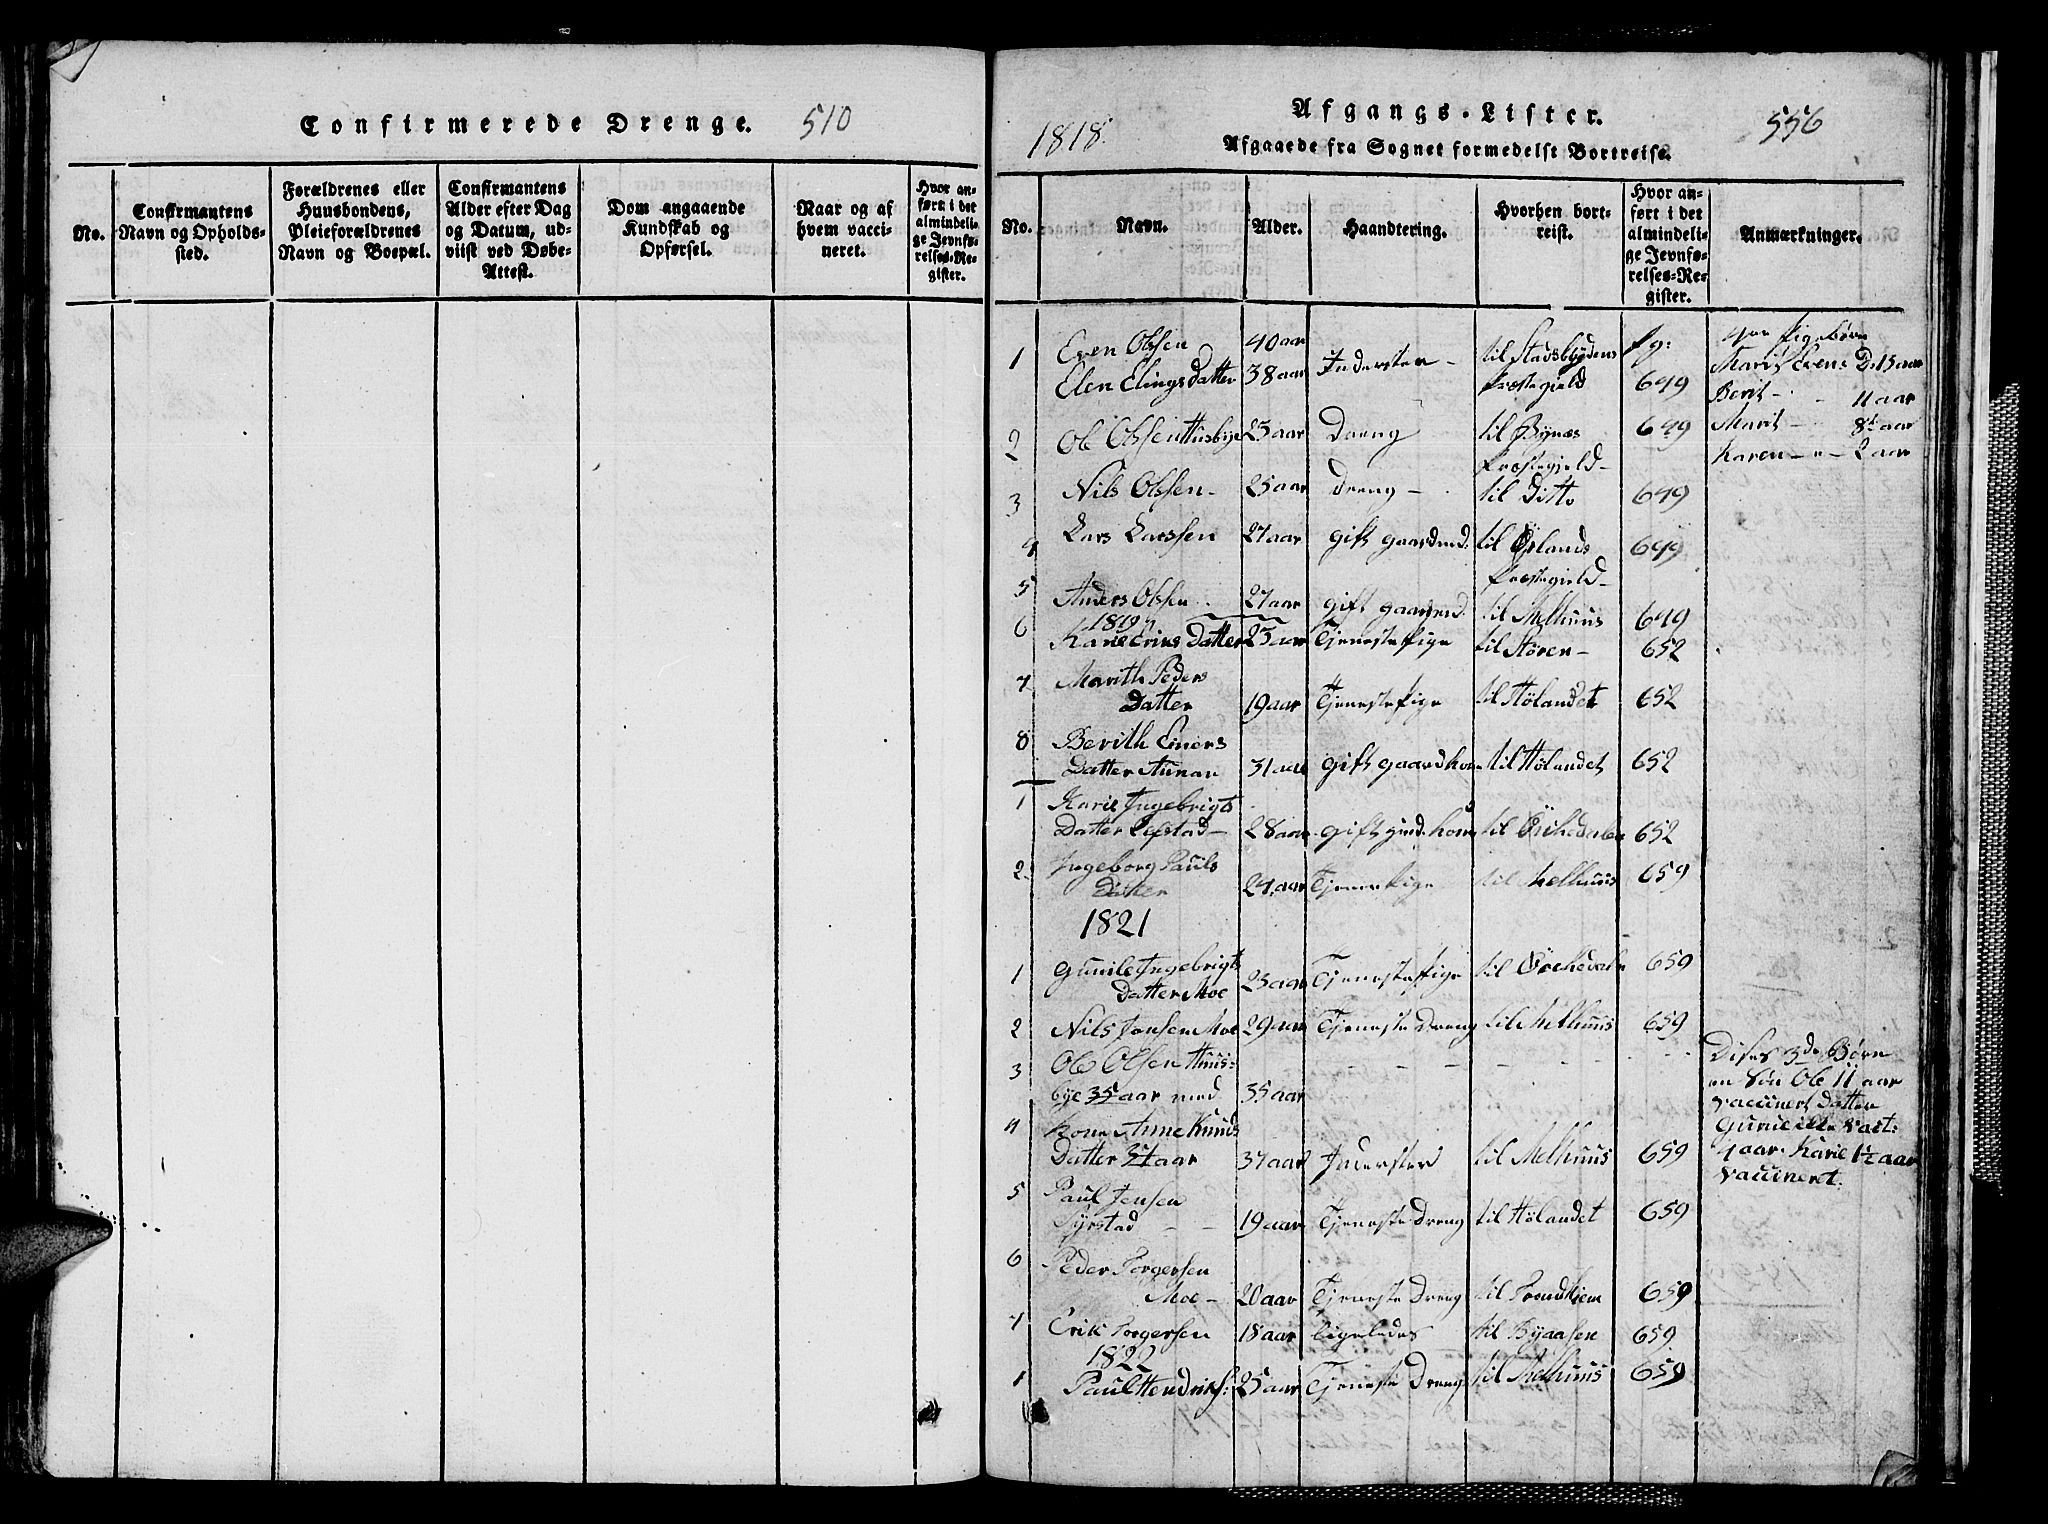 Confirmerede Drenge. 510
No.
Confirmantens Navn og Opholds-sted.
Forældrenes eller Huusbondens, Pleieforældrenes Navn og Boepæl.
Confirmantens Alder efter Dag og Datum, ud-viist ved Døbe-Attest.
Dom angaaende Kundskab og Opførsel.
Naar og af hvem vacci-neret.
Hvor an-ført i det almindeli-ge Jevnfø-relses-Re-gister.
1818. Afgangs-Lister. 556
Afgaaede fra Sognet formedelst Bortreise.
No.
Navn.
Alder.
Haandtering.
Hvorhen bort-reist.
Hvor an-ført i det almindeli-ge Jevnfø-relses-Re-gister.
Anmærkninger.
1 Even Olsen 40 aar Inderster til Stadsbÿdens fg:
Elen Elingsdatter 38 aar Præstegield 649
Pigebørn
Marit Evens D. 15 aar
Berit - 11 aar
Marit - 8½ aar
Karen - " - 2 aar
2 Ole Olsen Husbye 23 aar Dreng til Bynæs 649
Præstegield
3 Nils Olsen 25 aar dreng til Ditto 649
4 Lars Larssen 27 aar gift gaardmd: til Ørlands 649
Præstegield
5 Anders Olsen 27 aar gift til Melhuus 649
1819
6 Karie Eriks Datter 25 aar Tjenestepige til Stören 652
7 Marith Peders
Datter 19 aar Tjenestepige til Hølandet 652
8 Berith Einers
Datter Aunan 31 aar gift gaardkone til Hølandet 652
1 Karie Ingebrigts
Datter Lefstad 28 aar gift kone til 652
2 Ingeborg Pauls
Datter 24 aar til Melhuus 659
1821
1 Gunile Ingebrigts
Datter Moe 23 aar Tjenestepige til 659
2 Nils Jonsen Moe 29 aar Tjeneste Dreng til Melhuus 659
3 Ole Olsen Huus-
bye 35 aar med 35 aar
4 Kone Anne Knuds
Datter 37 aar 37 aar Inderster til Melhuus 659
Dises 3de Børn
en Søn Ole 11 aar
vaccineret Datter
Gurie
4 aar Karie 1½ aar
vaccineret.
5 Paul Jensen
Syrstad - - 19 aar Tjeneste Dreng til Hølandet 659
6 Peder Torgersen
Moe - 20 aar Tjeneste Dreng til Trondhiem 659
7 Erik Torgersen 18 aar ligeledes til Byaasen 659
1822
1 Paul Hendriks: 25 aar Tjeneste Dreng til Melhuus 659